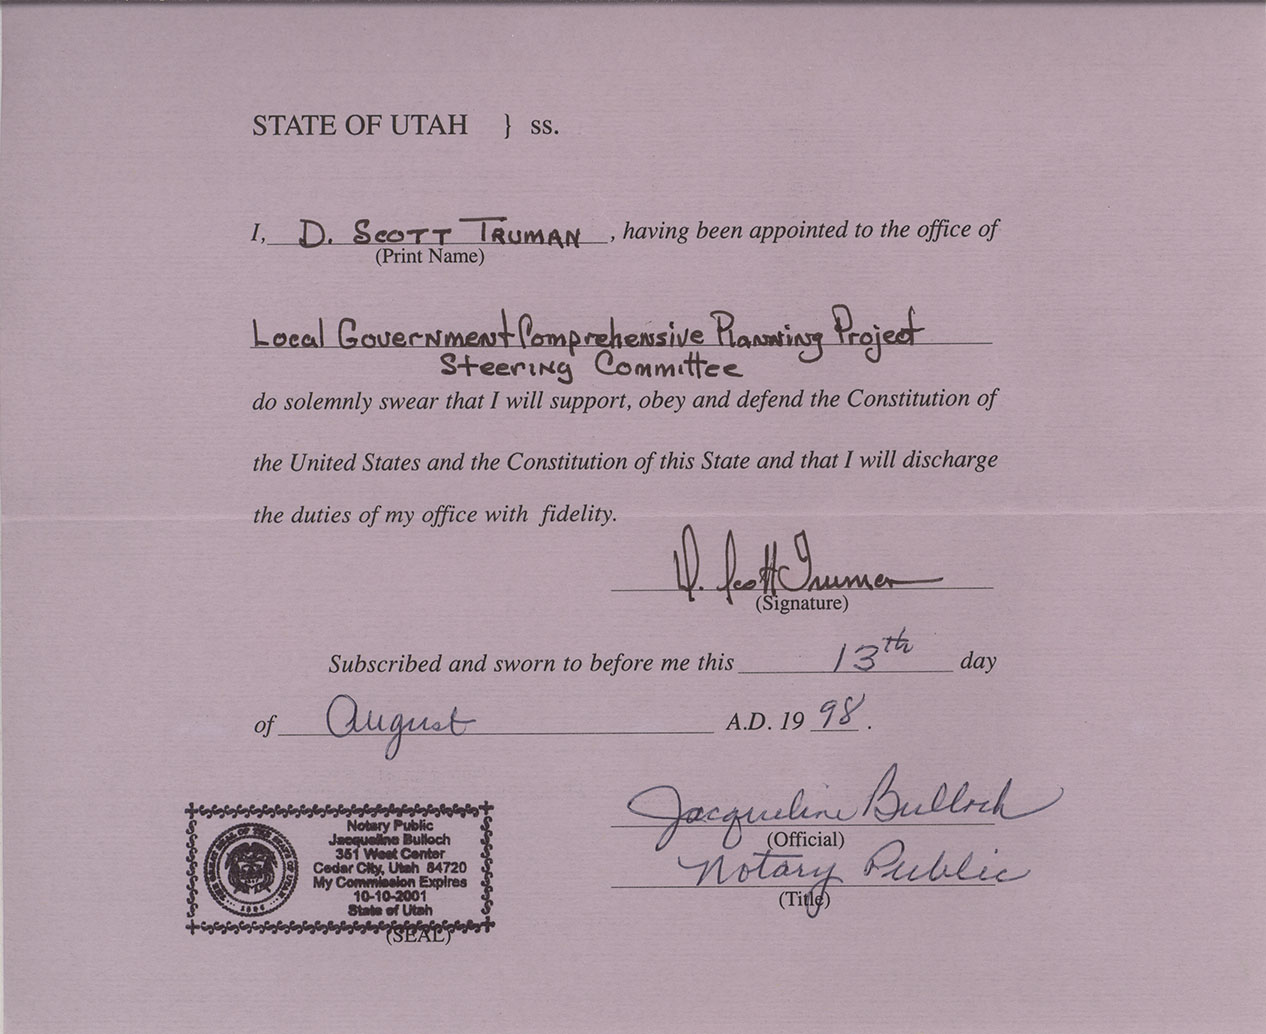 STATE OF UTAH } ss.
I, D. SCOTT TRUMAN , having been appointed to the office of
(Print Name)
Local Government Comprehensive Planning Project
Steering Committee
do solemnly swear that I will support, obey and defend the Constitution of
the United States and the Constitution of this State and that I will discharge
the duties of my office with fidelity.
D. Scott Truman
(Signature)
Subscribed and sworn to before me this 13th day
of August A.D. 19 98 .
Jacqueline Bulloch
(Official)
Notary Public
(Title)
THE GREAT SEAL OF THE STATE OF UTAH
1896
Notary Public
Jacqueline Bulloch
351 West Center
Cedar City, Utah 84720
My Commission Expires
10-10-2001
State of Utah
(SEAL)